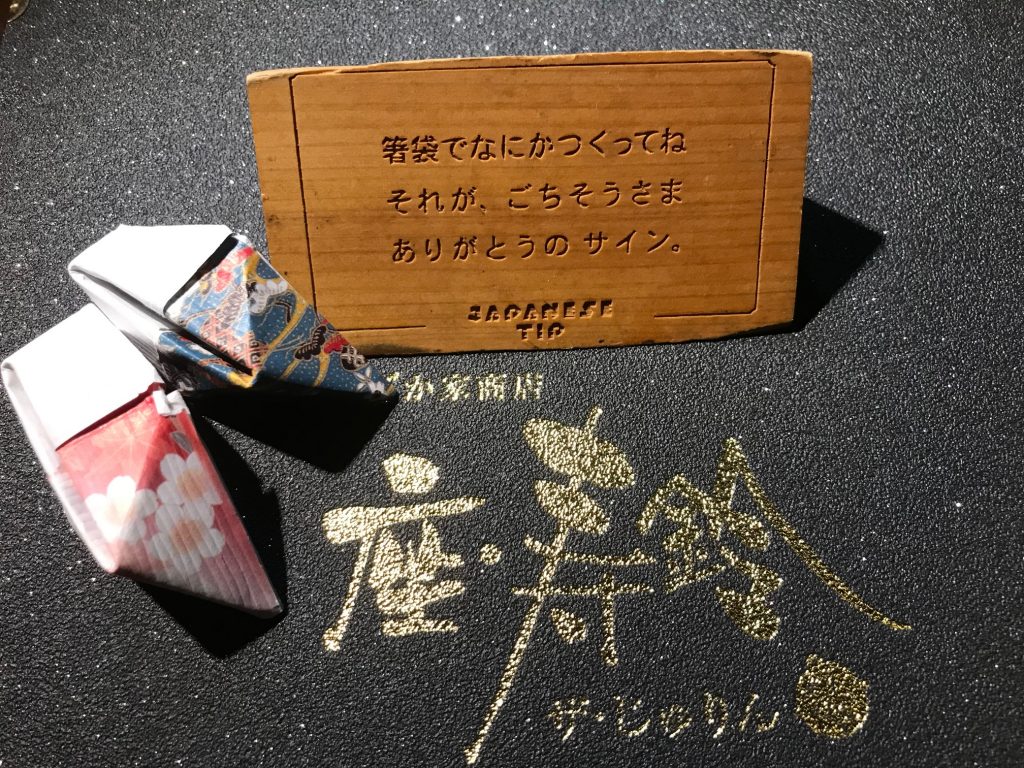 箸袋でなにかつくってね
それが、ごちそうさま
ありがとうの サイン。
JAPANESE
TIP
か家商店
座・寿鈴
ザ・じゅりん